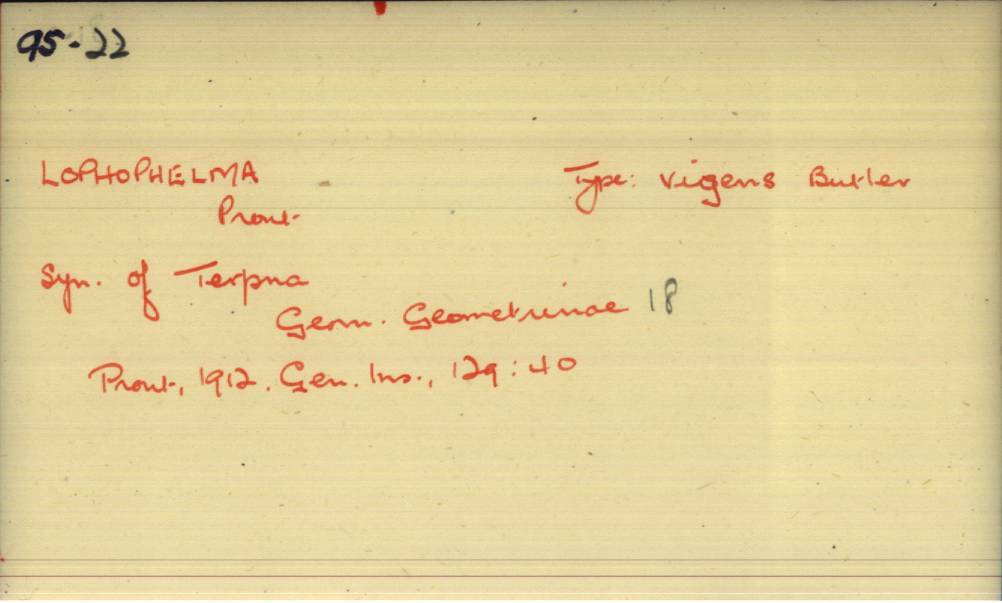 95-22
LOPHOPHELMA Type: vigens Butler
Prout
Syn. of Terpna
Geom. Geometrinae 18
Prout, 1912. Gen. Ins., 129:40